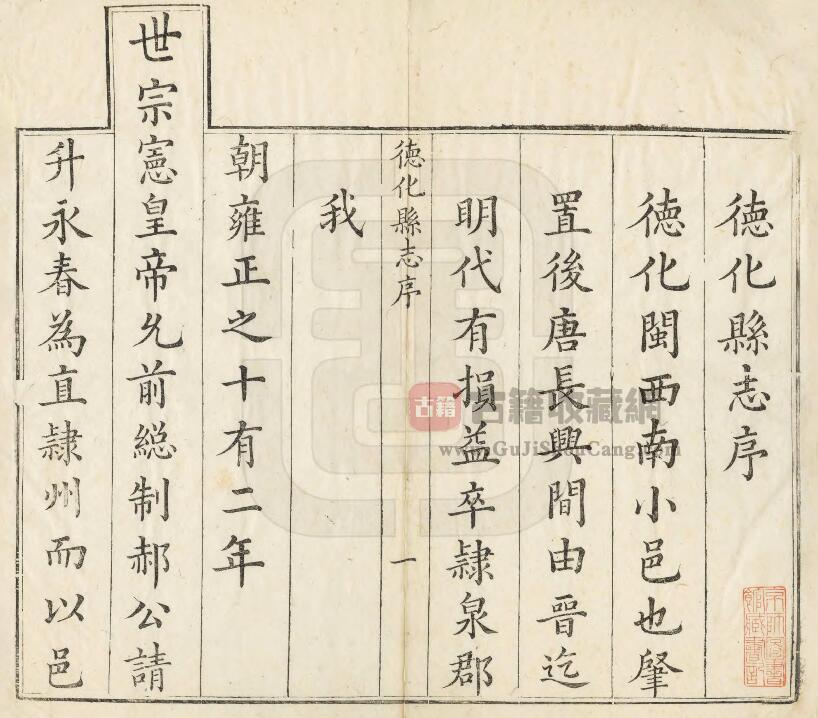 德化縣志序
德化閩西南小邑也肇
置後唐長興間由晉迄
明代有損益卒隷泉郡
德化縣志序
一
我
朝雍正之十有二年
世宗憲皇帝允前緫制郝公請
升永春為直隷州而以邑
古籍
古籍收藏網
www.GuJiShouCang.com